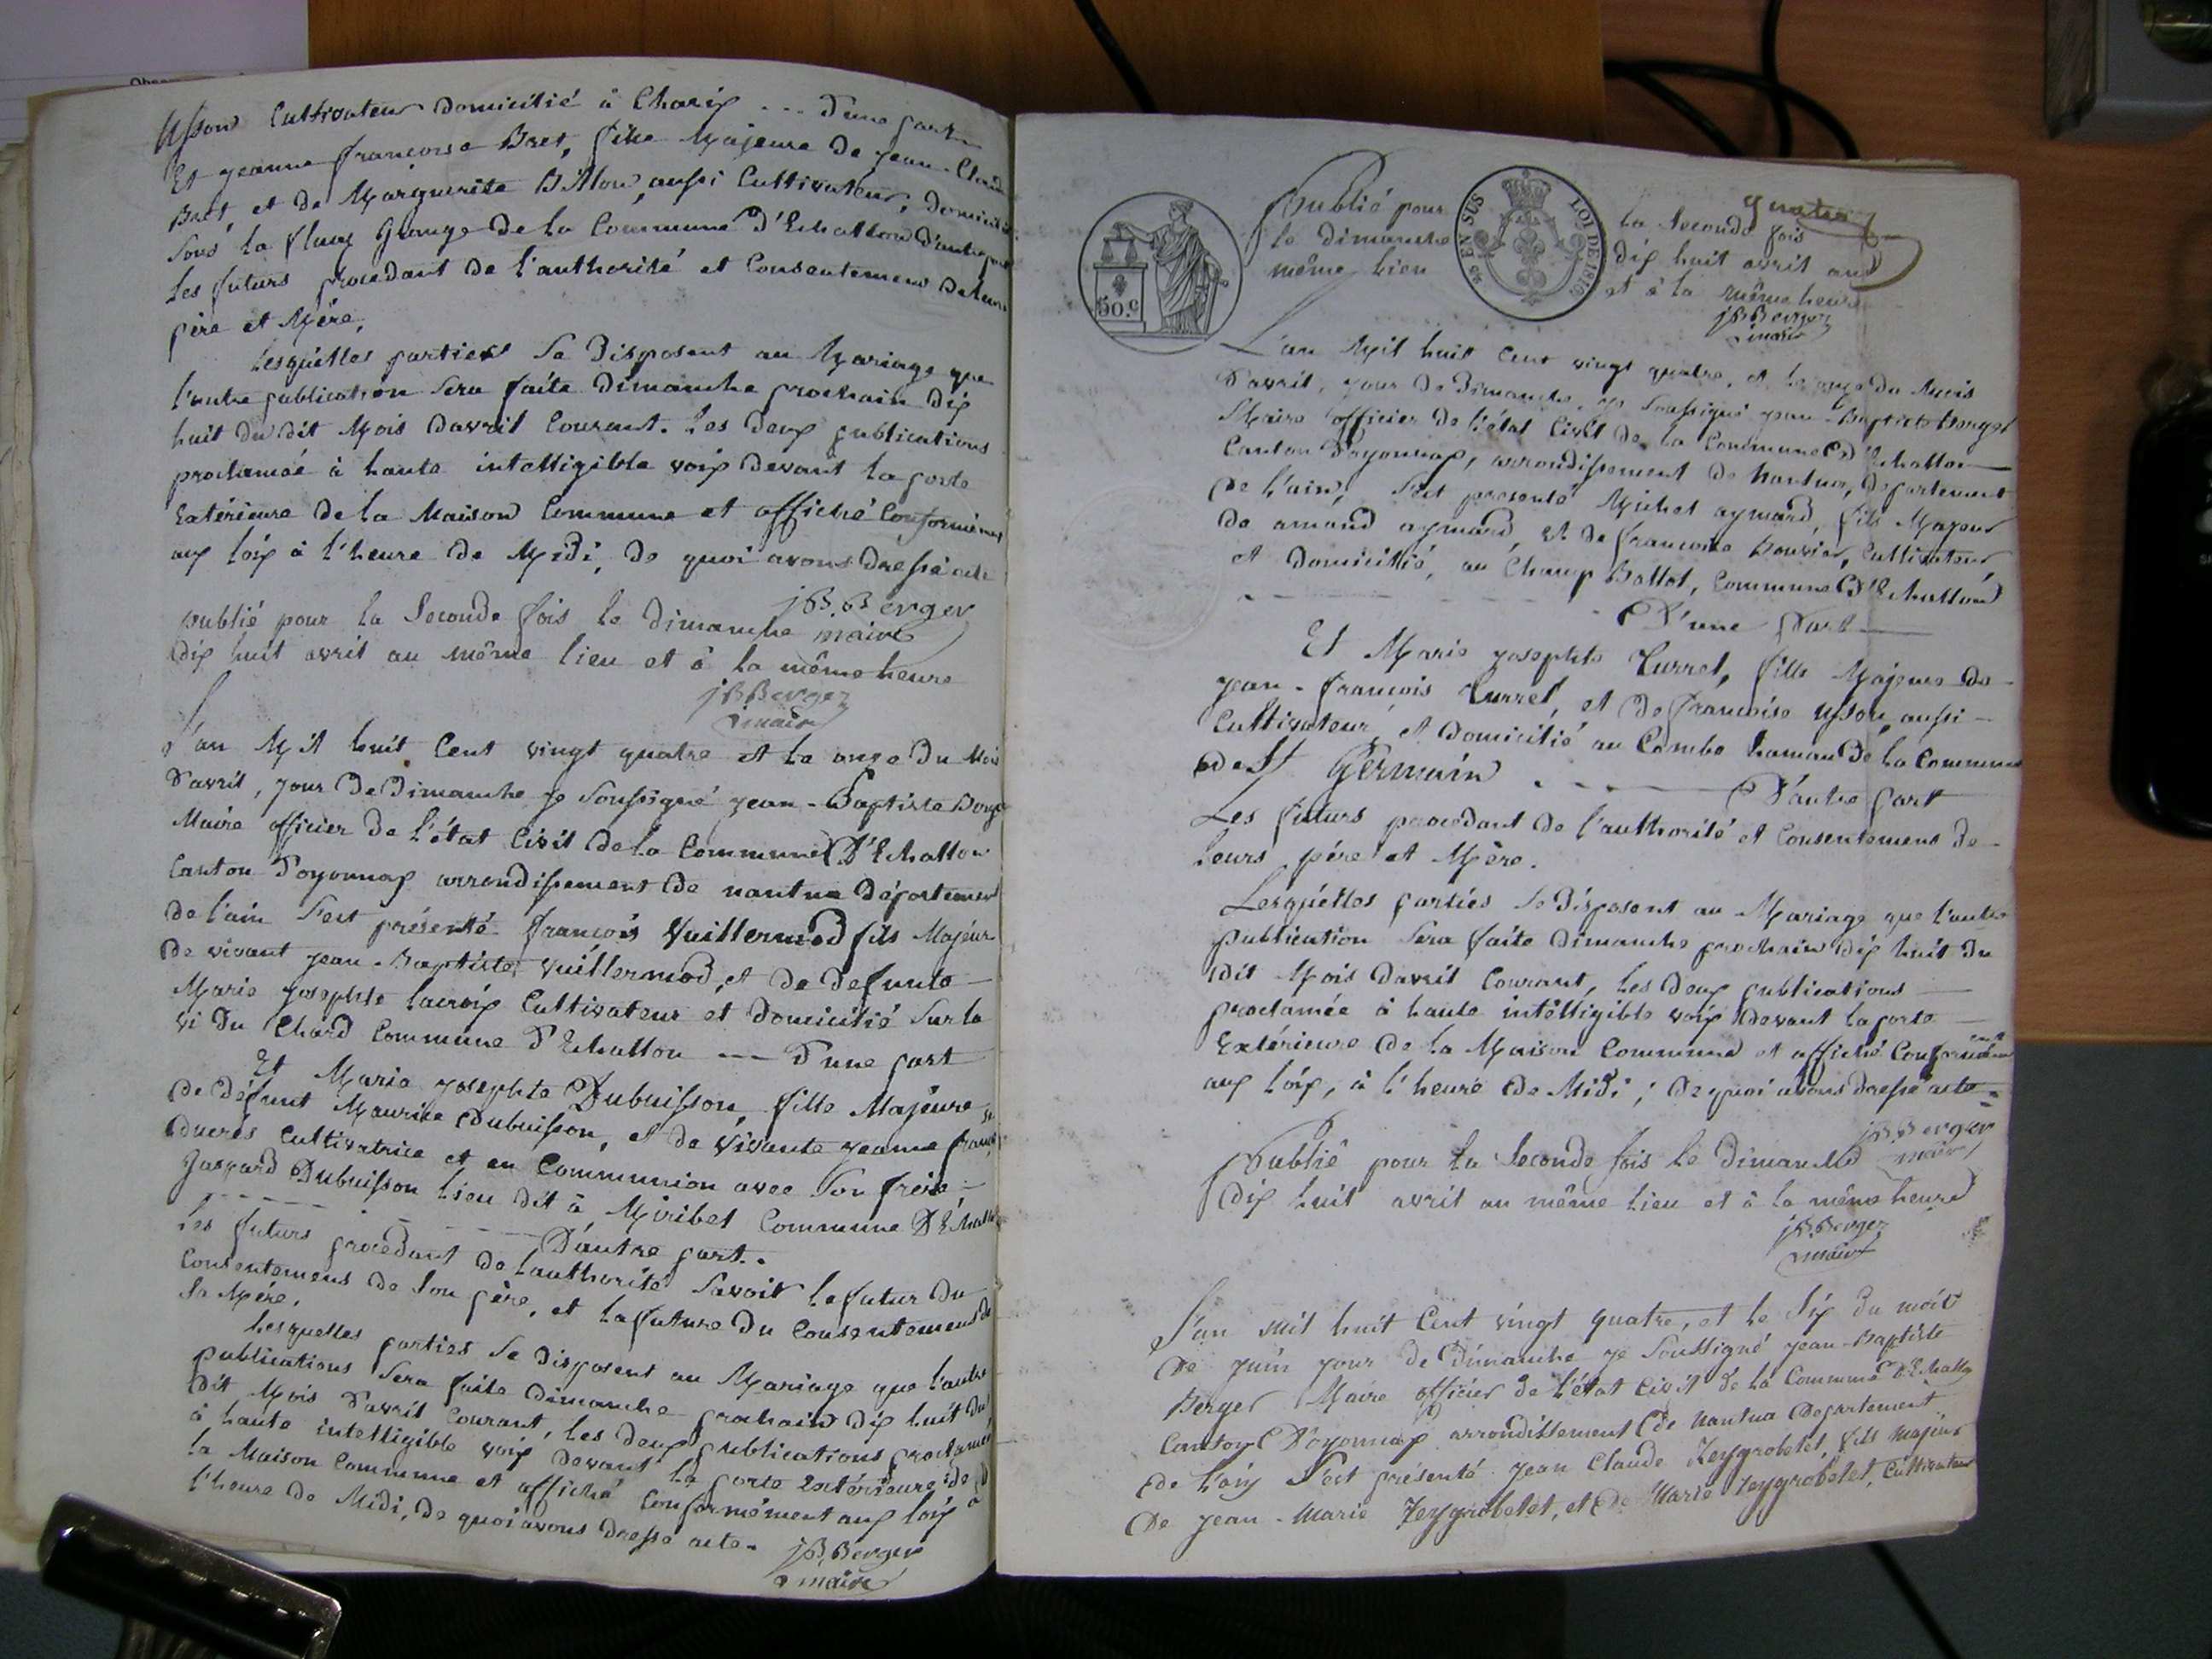 Usson Cultivateur domicilié à Charix --- d'une part
Et jeanne françoise Bret, fille Majeure de jean-Claude
Bret, et de Marguerite Billon, aussi Cultivateur, domicilié
Sous la Grange de la Commune d'Echallon d'autre part
Les futurs procedant de l'authorité et Consentement de leur
père et Mère,
Lesquelles parties Se Disposent au Mariage que
l'autre publication Sera faite Dimanche prochain dix
huit du dit Mois davril Courant. Les deux publications
proclamée à haute intelligible voix devant la porte
Extérieure de la Maison Commune et affiché Conformément
aux loix à l'heure de Midi, de quoi avons dressé acte
j B. Berger
publié pour la Seconde fois le dimanche maire
dix huit avril au même lieu et à la même heure
j B Berger
maire
L'an Mil huit Cent vingt quatre et le onze du Mois
d'avril, jour de Dimanche je Soussigné jean-Baptiste Berger
Maire officier de l'état Civil de la Commune D'Echallon
Canton d'oyonnax arrondissement de nantua Département
de l'ain S'est présenté françois Vuillermod fils Majeur
de vivant jean-Baptiste Vuillermod, et de defunte
Marie josephte lacroix Cultivateur et domicilié Sur la
vi du Chard Commune d'Echallon --- d'une part
Et Marie josephte Dubuisson, fille Majeure
de défunt Maurice Dubuisson, et de vivante jeanne
ducret Cultivatrice et en Communion avec Son frère
Gaspard Dubuisson lieu dit à Miribel Commune D'Echallon
D'autre part.
Les futurs procedant de l'authorité Savoir le futur du
Consentemens de Son père, et la future du Consentemens de
Sa Mère.
Lesquelles parties Se disposent au Mariage que l'autre
publications Sera faite dimanche prochain dix huit du
dit Mois d'avril Courant, les deux publications proclamé
à haute intelligible voix devant la porte extérieure de
la Maison Commune et affiché Conformément aux loix à
l'heure de Midi, de quoi avons dressé acte.
j B. Berger
maire
quatre
Publié pour la Seconde fois
le dimanche dix huit avril au
même lieu et à la même heure
50.C
EN SUS
LOI DE 1816
j B Berger
maire
L'an Mil huit Cent vingt quatre, et le onze du Mois
d'avril, jour de Dimanche, je Soussigné jean-Baptiste Berger
Maire officier de l'état Civil de la Commune d'Echallon
Canton d'oyonnax, arrondissement de Nantua, département
de l'ain, S'est presenté Michel aymard, fils Majeur
de amand aymard, et de francoise Bouvier, Cultivateur
et domicillié, au Champ Ballet, Commune d'Echallon
D'une Part
Et Marie josephte Turrel, fille Majeure de
jean-françois Turrel, et de françoise Usson aussi
Cultivateur et domicilié au Combe hamau de la Commune
de St Germain - - - D'autre part
Les futurs procedant de l'authorité et Consentement de
leurs père et Mère.
Lesquélles parties Se disposent au Mariage que l'autre
publication Sera faite Dimanche prochain dix huit du
dit Mois davril Courant, les deux publications
proclamée à haute intélligible voix devant la porte
Extérieure de la Maison Commune et affiché Conformément
aux loix, à l'heure de Midi; de quoi avons dressé acte
j B. Berger
Publié pour la Seconde fois le dimanche maire
dix huit avril au même lieu et à la même heure
j B. Berger
maire
L'an mil huit Cent vingt quatre, et le Six du mois
de juin jour de Dimanche je Soussigné jean-Baptiste
Berger Maire officier de l'état Civil de la Commune d'Echallon
Canton D'oyonnax arrondissement de Nantua Département
de l'ain S'est présenté jean Claude Zeygrobelet, fils majeur
de jean-Marie Zeygrobelet, et de Marie Zeygrobelet, Cultivateur